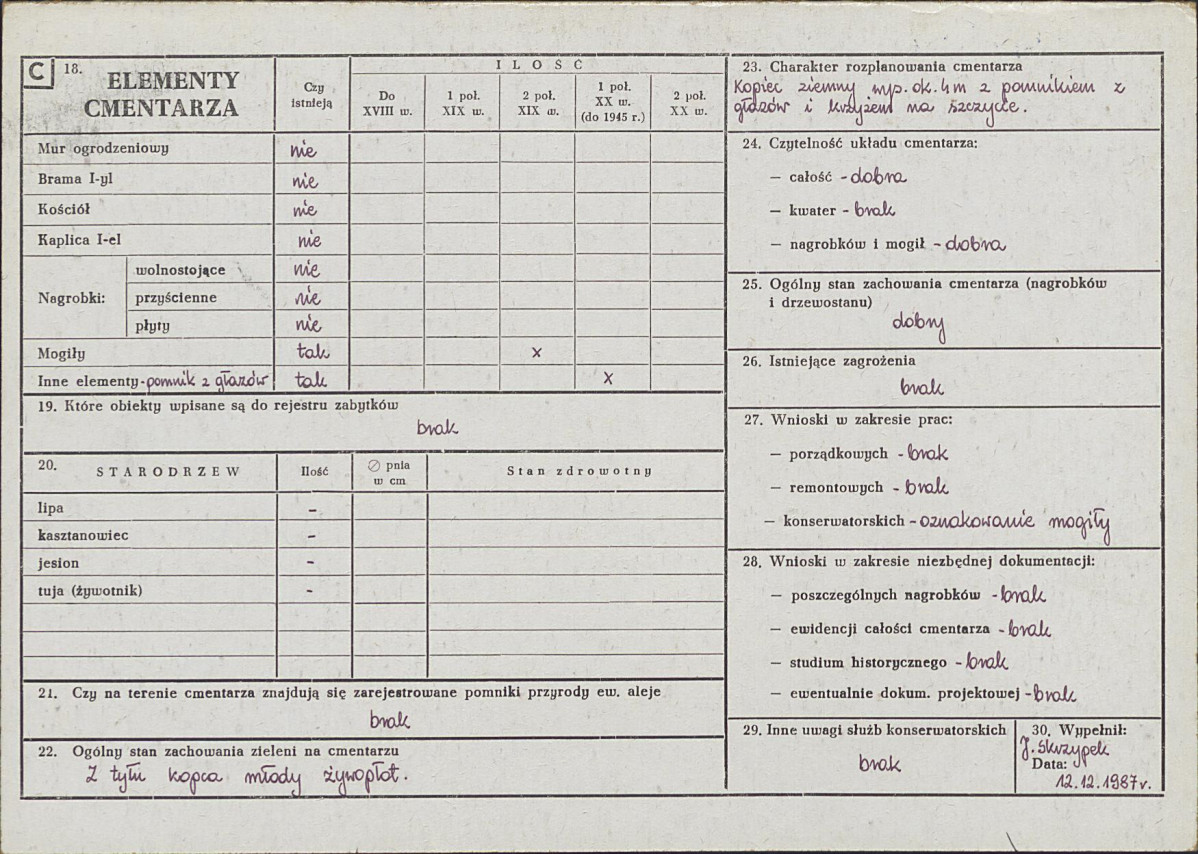 C 18. ELEMENTY CMENTARZA
Czy istnieją
I L O Ś Ć
Do XVIII w.
1 poł. XIX w.
2 poł. XIX w.
1 poł. XX w. (do 1945 r.)
2 poł. XX w.
Mur ogrodzeniowy nie
Brama I-yl nie
Kościół nie
Kaplica I-el nie
Nagrobki:
wolnostojące nie
przyścienne nie
płyty nie
Mogiły tak x
Inne elementy - pomnik z głazów tak x
19. Które obiekty wpisane są do rejestru zabytków
brak
20. S T A R O D R Z E W Ilość ∅ pnia w cm Stan zdrowotny
lipa -
kasztanowiec -
jesion -
tuja (żywotnik) -
21. Czy na terenie cmentarza znajdują się zarejestrowane pomniki przyrody ew. aleje
brak
22. Ogólny stan zachowania zieleni na cmentarzu
Z tyłu kopca młody żywopłot.
23. Charakter rozplanowania cmentarza
Kopiec ziemny wys. ok. 4 m z pomnikiem z
głazów i krzyżem na szczycie.
24. Czytelność układu cmentarza:
— całość - dobra
— kwater - brak
— nagrobków i mogił - dobra
25. Ogólny stan zachowania cmentarza (nagrobków
i drzewostanu)
dobry
26. Istniejące zagrożenia
brak
27. Wnioski w zakresie prac:
— porządkowych - brak
— remontowych - brak
— konserwatorskich - oznakowanie mogiły
28. Wnioski w zakresie niezbędnej dokumentacji:
— poszczególnych nagrobków - brak
— ewidencji całości cmentarza - brak
— studium historycznego - brak
— ewentualnie dokum. projektowej - brak
29. Inne uwagi służb konserwatorskich
brak
30. Wypełnił:
J. Skrzypek
Data:
12.12.1987 r.